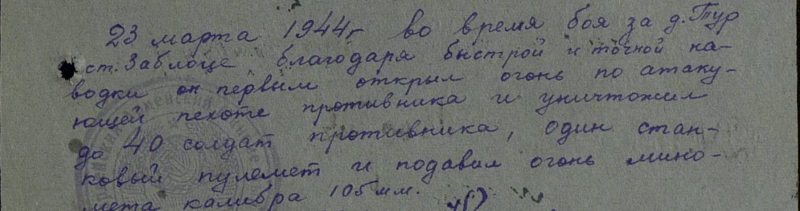 23 марта 1944г во время боя за д. Тур
ст. Заблоце благодаря быстрой и точной на-
водки он первым открыл огонь по атаку-
ющей пехоте противника и уничтожил
до 40 солдат противника, один стан-
ковый пулемет и подавил огонь мино-
мета калибра 105 мм.